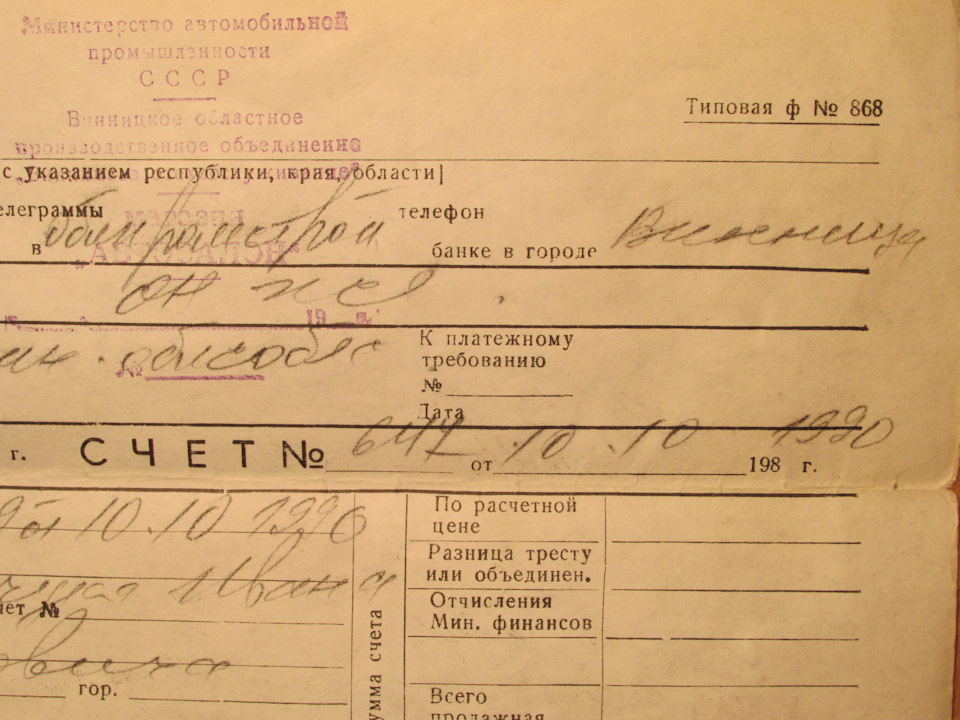 Министерство автомобильной
промышленности
СССР
Винницкое областное
производственное объединение
Типовая ф № 868
с указанием республики, края, области)
елеграммы
телефон
МАГАЗИН
в
банке в городе Винница
он же
19
К платежному
требованию
№
№
Дата
г. СЧЕТ № 647 от 10.10 1990 198 г.
от 10.10 1990
По расчетной
цене
Разница тресту
или объединен.
Ивана
чет №
Отчисления
Мин. финансов
овича
умма счета
гор.
Всего
продажная